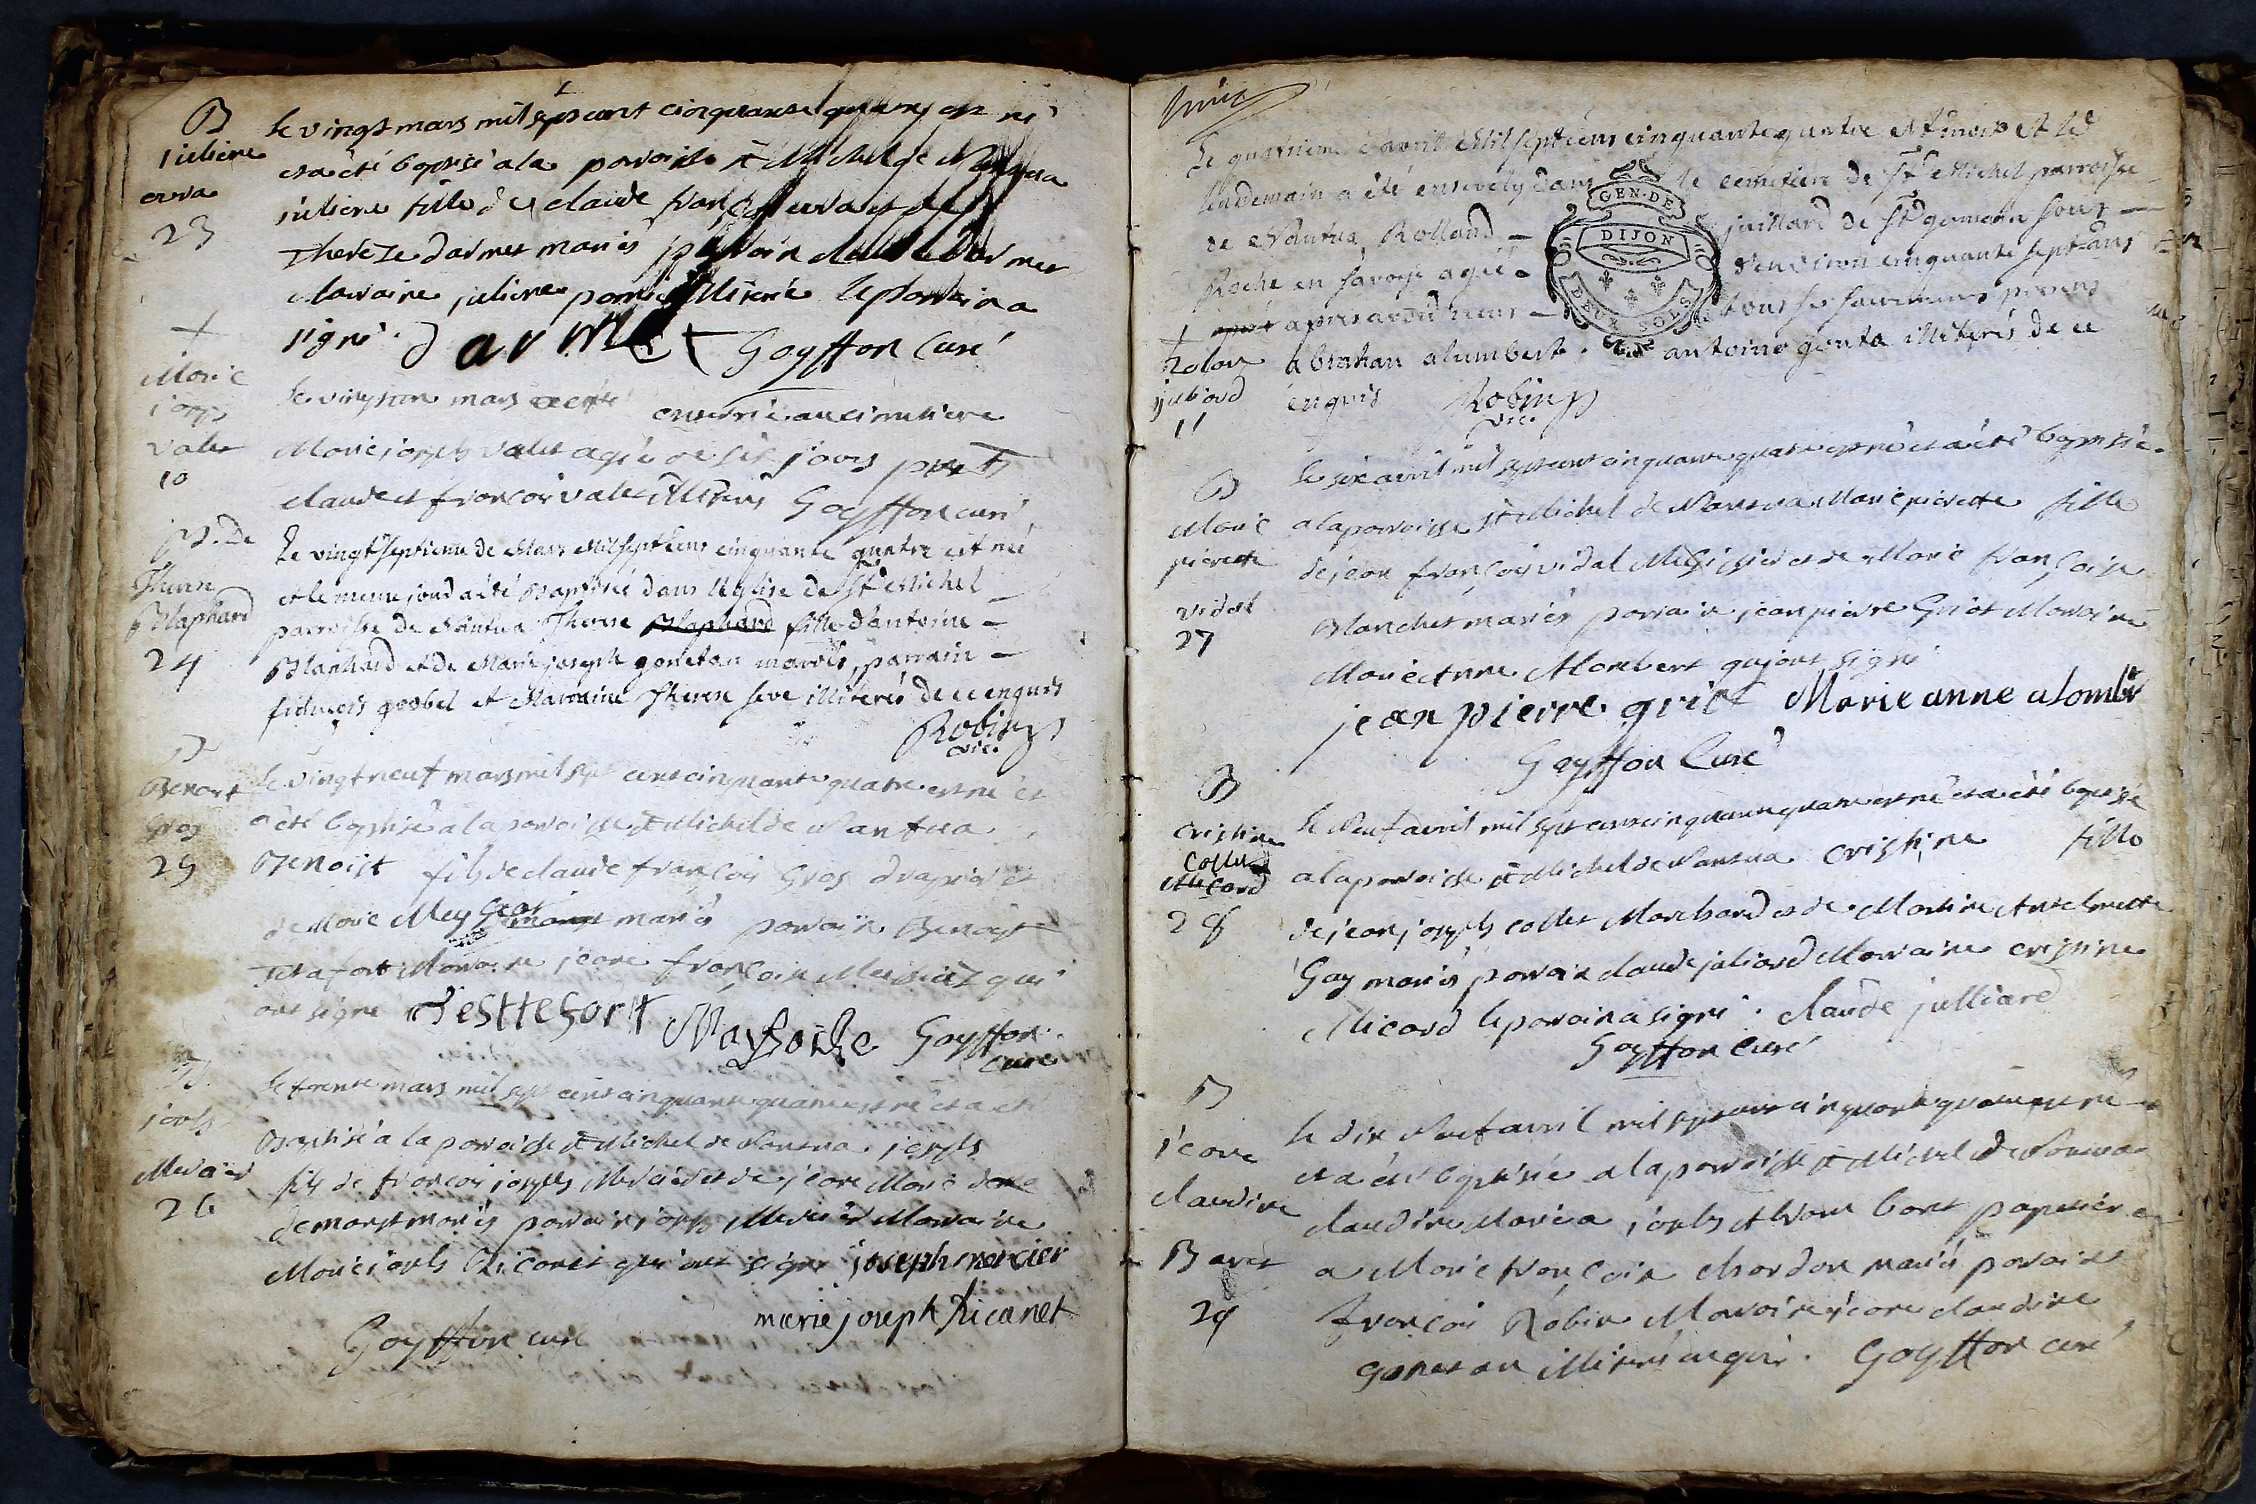 B
juliene
23
le vingt mars mil sept cent cinquante quatre est né
et a été baptisé a la paroisse st Michel de Nantua
juliene fille de claude françois
Thereze darmet mariés parrain claude darmet
Maraine juliene illiterée le parrain a
signé. darmet Goyffon Curé
+
Marie
joseph
valet
10
le vingt mars a été enterrée au cimetiere
Marie joseph valet agée de six jours
claude et françois valet illiterés Goyffon curé
Therese
Blaphard
24
Le vingt septieme de Mars Mil sept cens cinquante quatre est née
et le meme jour a été Baptisée dans l'Eglise de St Michel
parroisse de Nantua Therese Blaphard fille d'antoine
Blanhard et de Marie joseph gonetan mariés, parrain
et Maraine Therese seve illiterés de ce enquis
Robin
vic.
B
Benoit
Gros
25
le vingt neuf mars mil sept cent cinquante quatre est né et
a été baptisé a la paroisse st Michel de Nantua
Benoist fils de claude françois Gros drapier et
de Marie mariés parrain Benoist
Testafort Maraine jeane françoise qui
ont signé Testtefort Goyffon
curé
B
joseph
Mercier
26
le trente mars mil sept cent cinquante quatre est né et a été
Baptisé a la paroisse st Michel de Nantua joseph
fils de françois joseph Mercier et de jeane Marie
demornet mariés parrain joseph Mercier Maraine
Marie joseph Ricanet qui ont signé joseph mercier
marie joseph Ricanet
Goyffon curé
Le quatrieme d'avril Mil sept cens cinquante quatre est mort et le
lendemain a été ensevely dans le cemetiere de St Michel parroisse
de Nantua Rolland juillard de St germain sous
Roche en savoye agée d'environ cinquante sept ans
apres avoir receus tous ses sacremens presens
abraham alumbert antoine gonta illiterés de ce
enquis Robin
vic.
GEN. DE
DIJON
DEUX SOLS
+
Roland
juliard
11
B
Marie
pierrette
vidal
27
le six avril mil sept cent cinquante quatre est né et a été baptisée
a la paroisse st Michel de Nantua Marie pierrette fille
de jean françois vidal et de Marie françoise
Blanchet mariés parrain jean pierre Griot Maraine
Marie Anne Alombert qui ont signé
jean pierre griot Marie anne alombert
Goyffon Curé
B
Cristine
Collet
Micard
28
le Neuf avril mil sept cent cinquante quatre est né et a été baptisé
a la paroisse st Michel de Nantua Cristine fille
de jean joseph collet Marchand et de Martine Anthelmette
Gay mariés parrain claude juliard Maraine cristine
Micard le parrain a signé. claude julliard
Goyffon Curé
B
jeane
claudine
Baret
29
le dix Neuf avril mil sept cent cinquante quatre est né
et a été baptisée a la paroisse st Michel de Nantua
papetier
a Marie françoise chardon mariés parrain
françois Robin Maraine jeane claudine
gonetan illiterés enquis. Goyffon curé